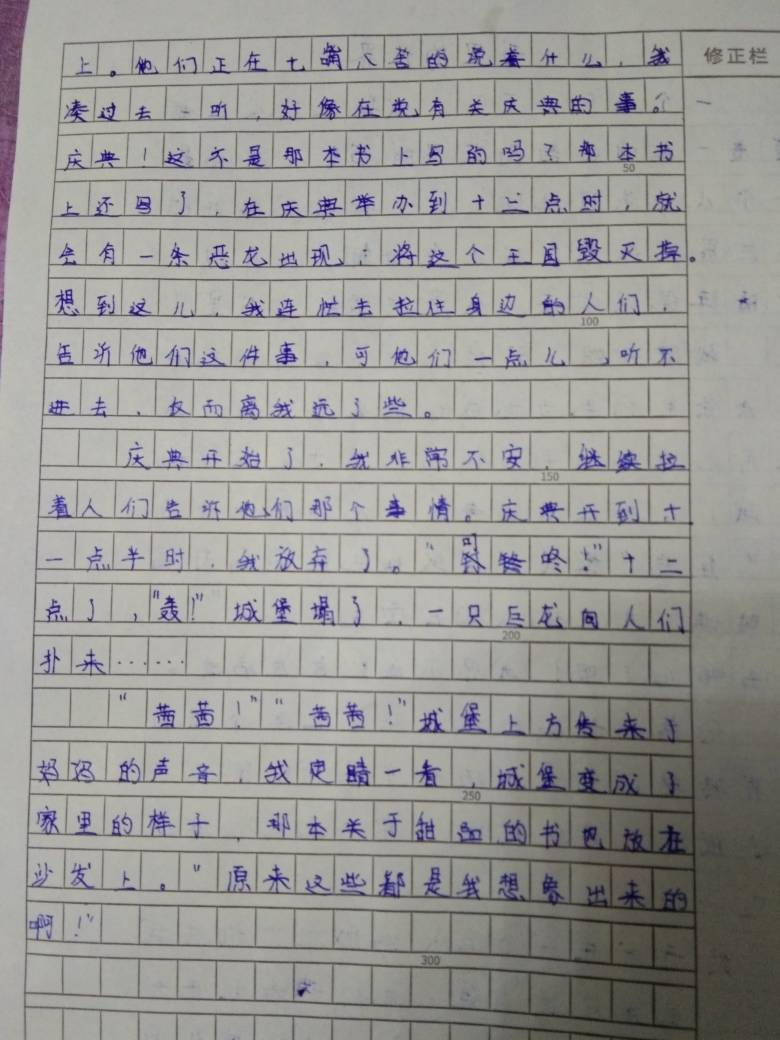 上。他们正在七嘴八舌的说着什么，我 修正栏
凑过去一听，好像在说有关庆典的事。
庆典！这不是那本书上写的吗？那本书
50
上还写了，在庆典举办到十二点时，就
会有一条恶龙出现，将这个王国毁灭掉。
想到这儿，我连忙去拉住身边的人们，
100
告诉他们这件事，可他们一点儿，听不
进去，反而离我远了些。
庆典开始了，我非常不安，继续拉
150
着人们告诉他们那个事情。庆典开到十
一点半时，我放弃了。“叮咚！”十二
点了，“轰！”城堡塌了，一只巨龙向人们
200
扑来……
“茜茜！”“茜茜！”城堡上方传来了
妈妈的声音，我定睛一看，城堡变成了
250
家里的样子，那本关于甜品的书也放在
沙发上。“原来这些都是我想象出来的
啊！”
300